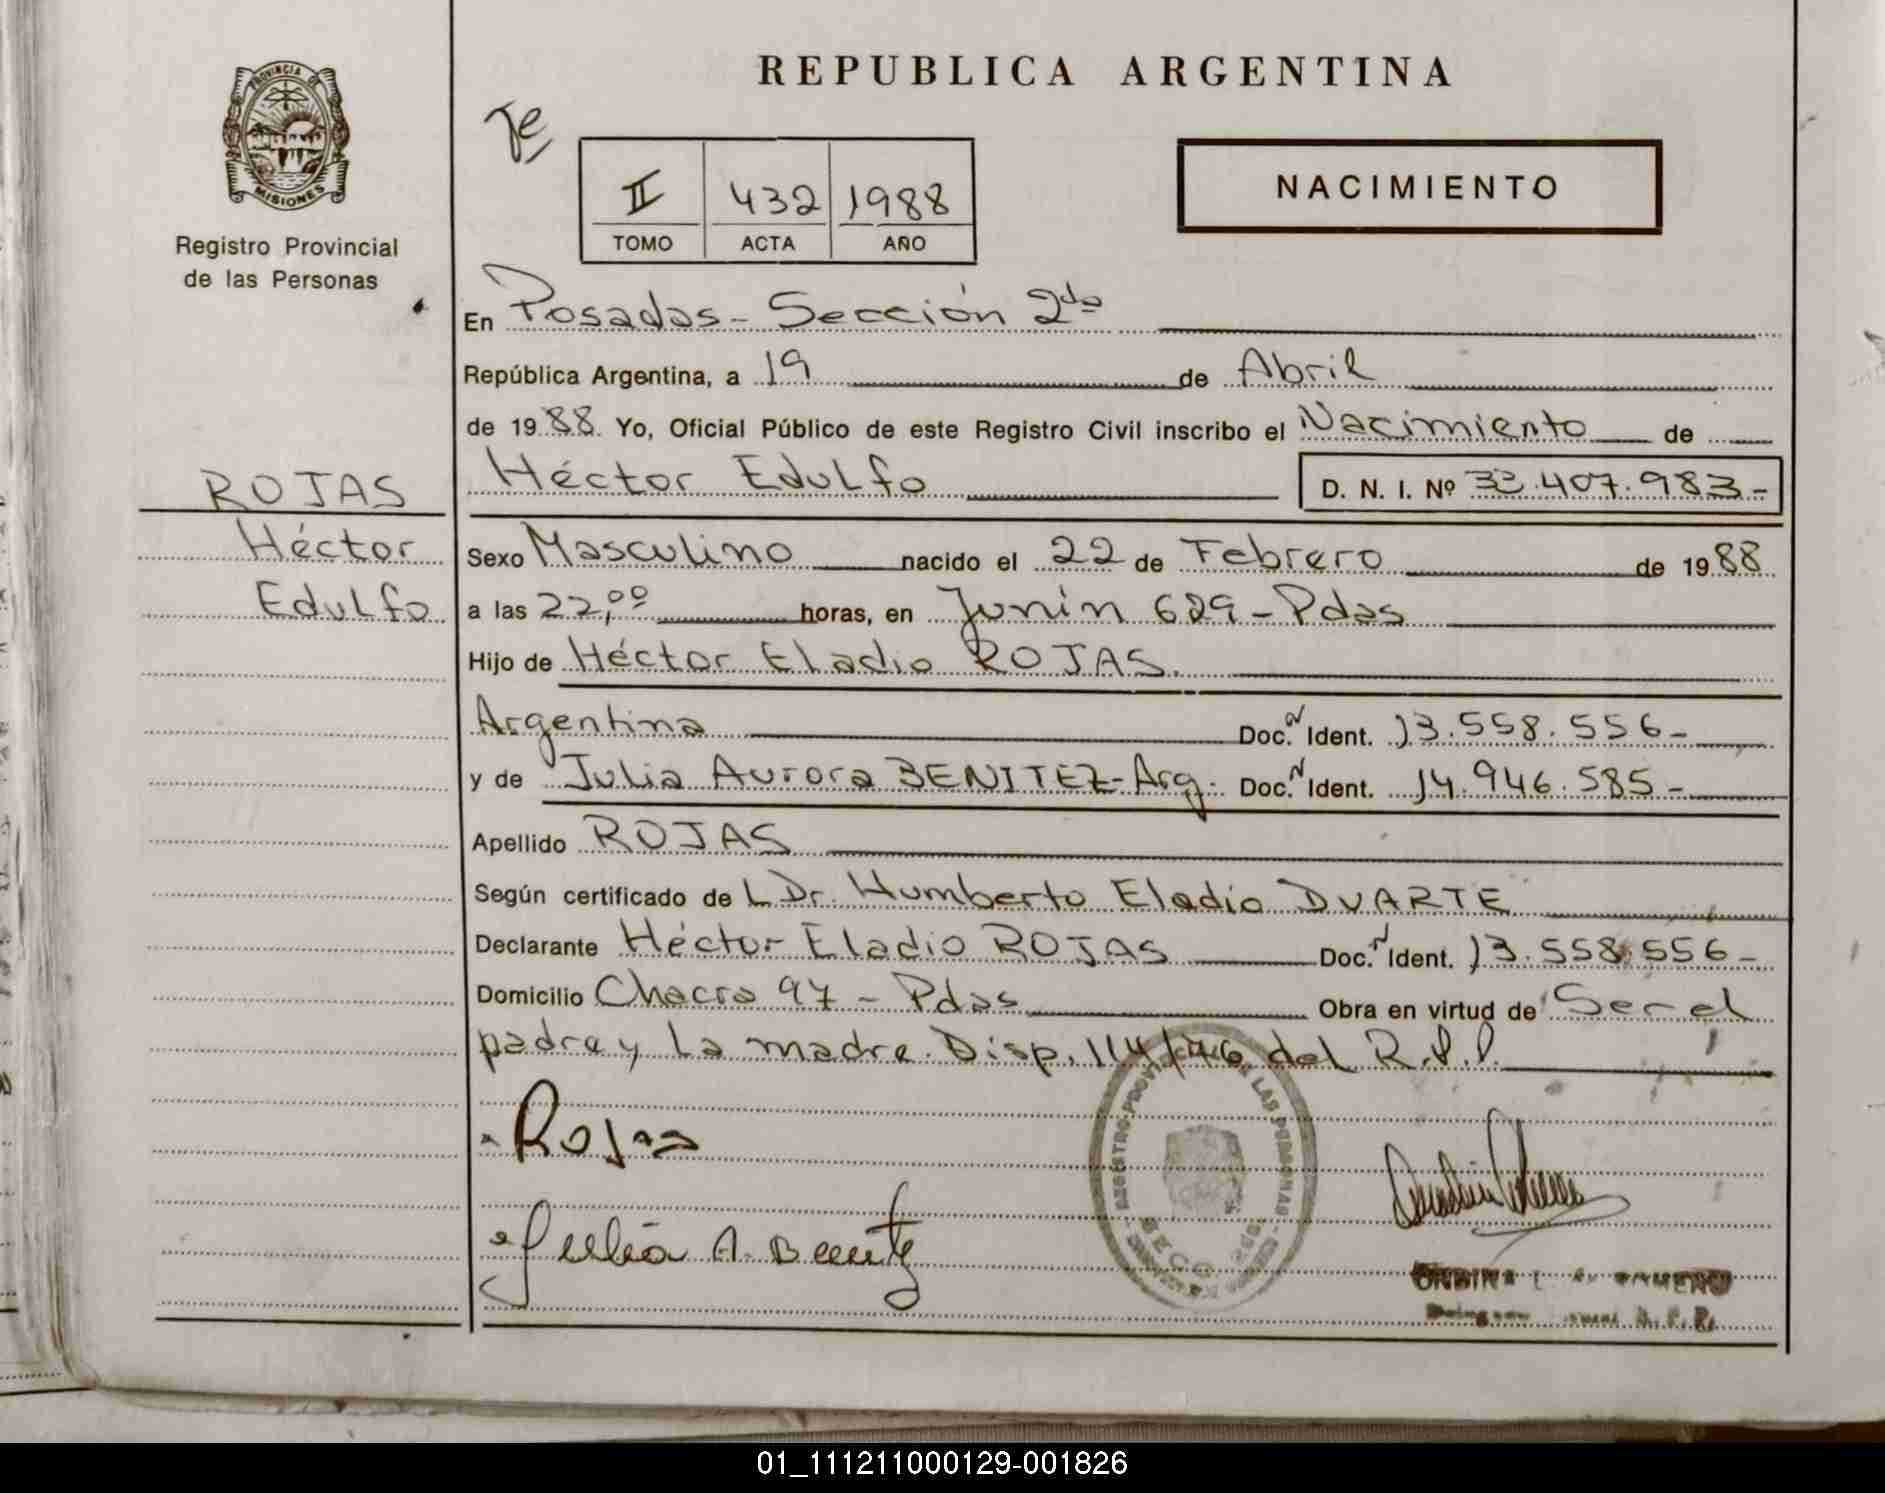 REPUBLICA ARGENTINA
PROVINCIA DE
MISIONES
Registro Provincial
de las Personas
II 432 1988
TOMO ACTA AÑO
NACIMIENTO
En Posadas - Sección 2da
República Argentina, a 19 de Abril
de 1988 Yo, Oficial Público de este Registro Civil inscribo el Nacimiento de
ROJAS
Héctor
Edulfo
Héctor Edulfo D. N. I. Nº 33.407.983-
Sexo Masculino nacido el 22 de Febrero de 1988
a las 22,00 horas, en Junín 629 - Pdas
Hijo de Héctor Eladio ROJAS.
Argentina Doc. Ident. 13.558.556-
y de Julia Aurora BENITEZ - Arg. Doc. Ident. 14.946.585-
Apellido ROJAS
Según certificado de L Dr. Humberto Eladio DUARTE
Declarante Héctor Eladio ROJAS Doc. Ident. 13.558.556-
Domicilio Chacra 97 - Pdas Obra en virtud de Ser el
padre y la madre. Disp. 114/76 del R.P.P.
Rojas
Julia A. Benitez
REGISTRO PROVINCIAL DE LAS PERSONAS
01_111211000129-001826